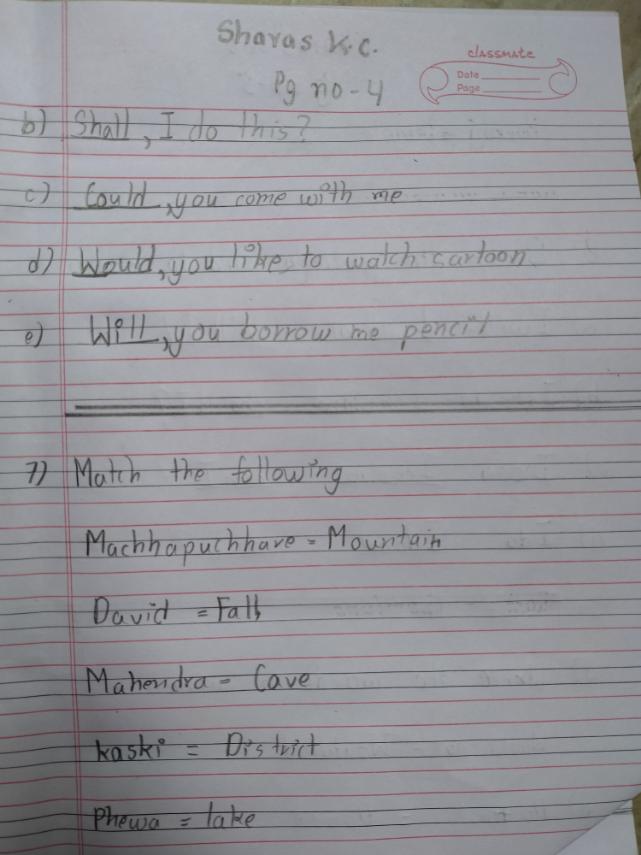 Sharas K.C.
classmate
Date
Page
Pg no-4
b) Shall, I do this?
c) Could, you come with me
d) Would, you like to watch cartoon
e) Will, you borrow me pencil
7) Match the following
Machhapuchhare = Mountain
David = Falls
Mahendra - Cave
kaski = District
Phewa = lake